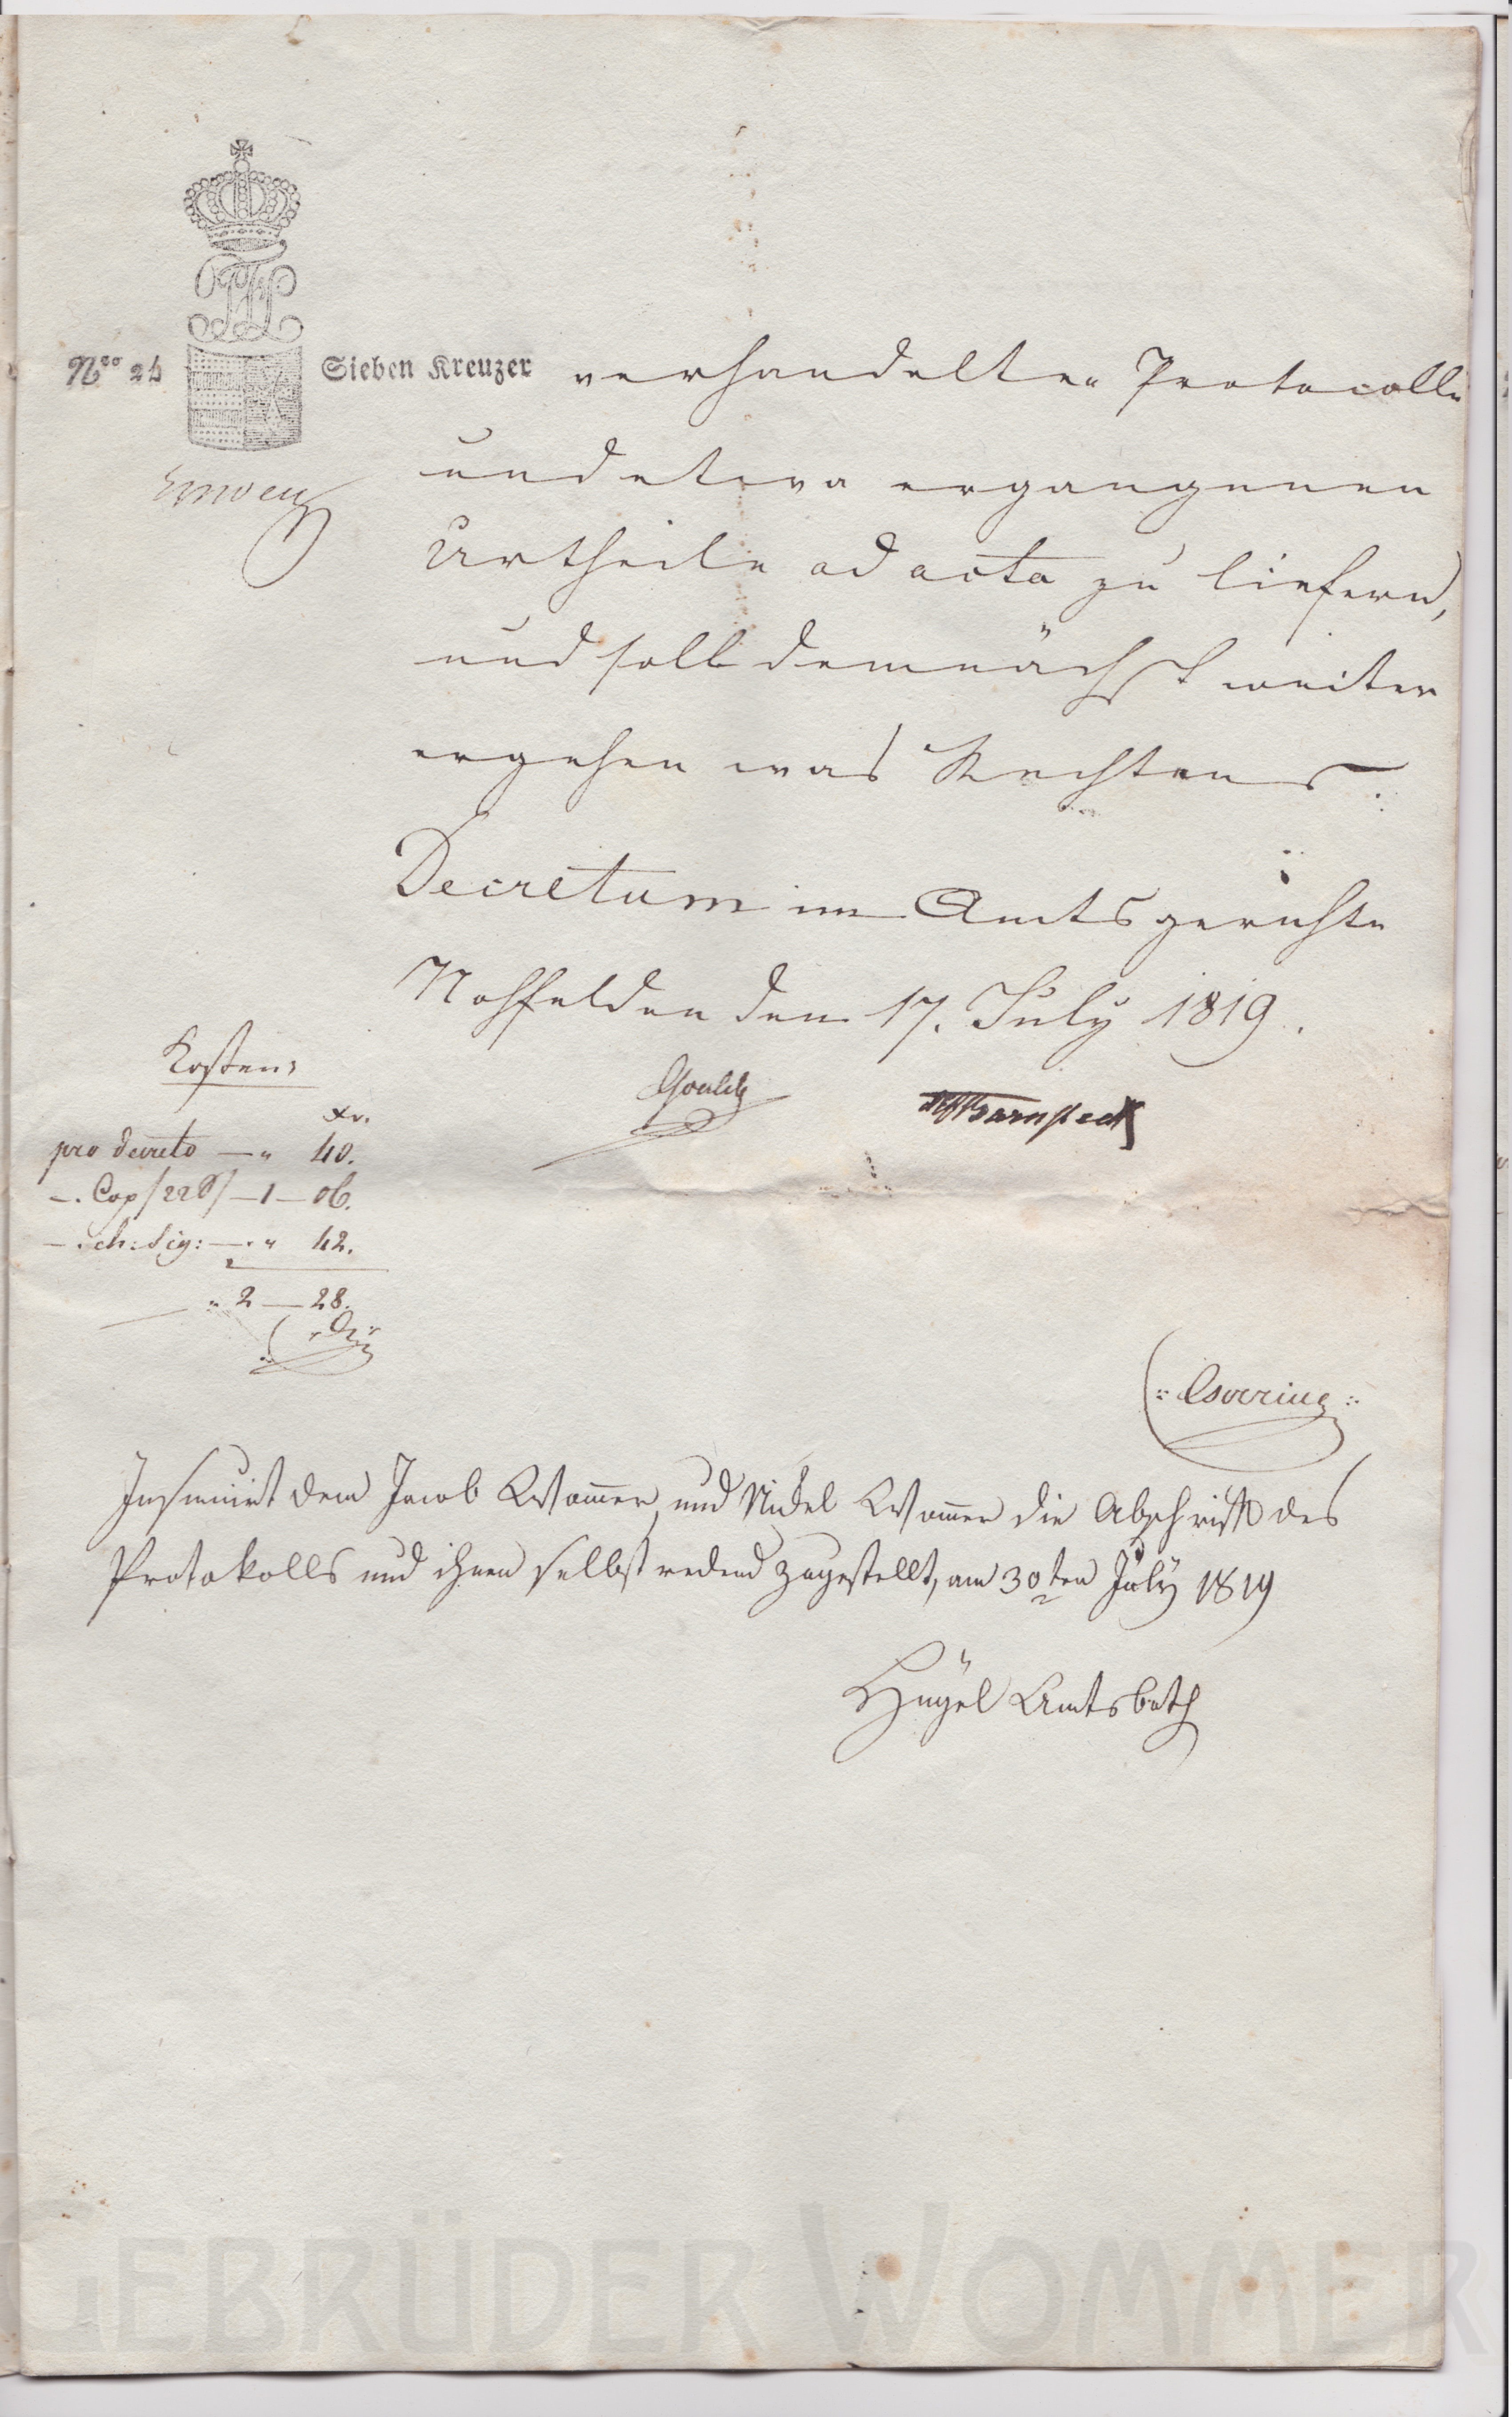 Nro 24 Sieben Kreuzer verhandelten Protocolle
und etwa ergangenen
Urtheile ad acta zu liefern,
und soll demnächst weiter
ergehen was Rechtens.
Decretum im Amtsgerichte
Nohfelden den 17. July 1819.
Barnstedt
Kosten:
Xr.
pro decreto — " 40.
—. Cop /22 S/ — 1 — 06.
—. ch: sig: — " 42.
" 2 — 28.
Insinuirt dem Jacob Wommer, und Nickel Wommer die Abschrift des
Protokolls und ihnen selbst redend zugestellt, am 30ten July 1819
Hügel Amtsboth
GEBRÜDER WOMMER